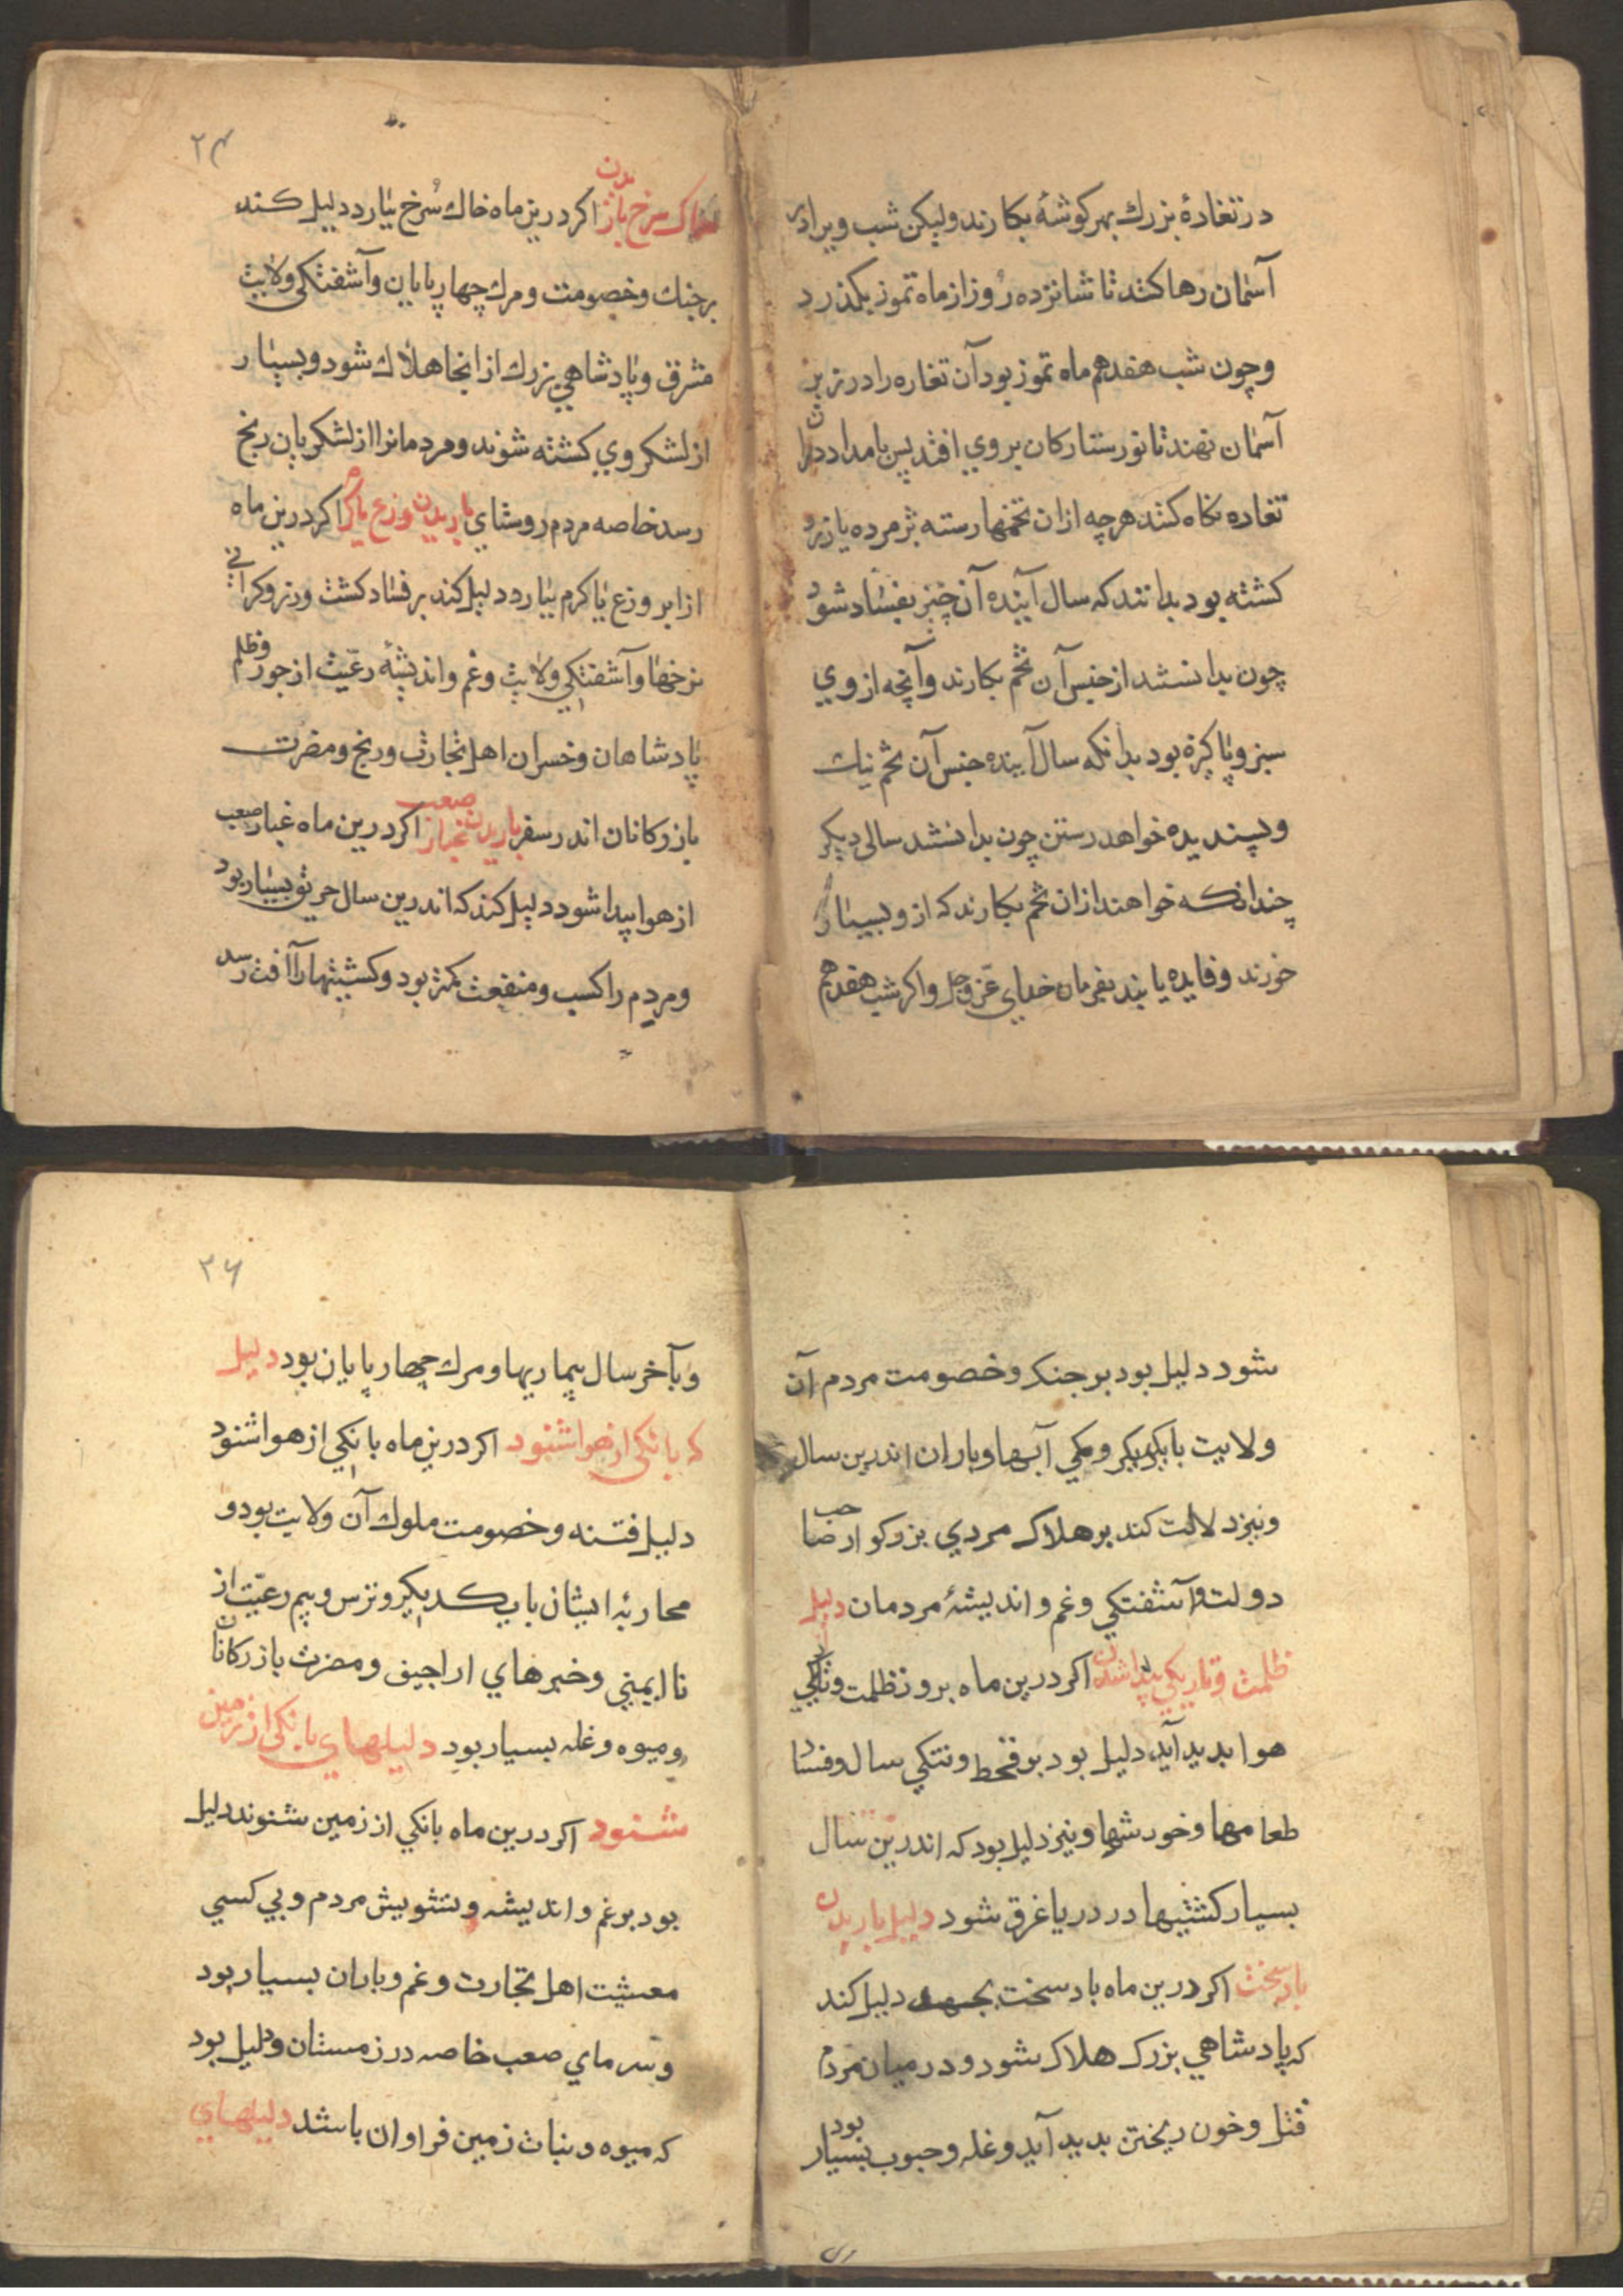 در تغاده بزرك بهر كوشهٔ بكارند وليكن شب ويرا در
آسمان رها كنند تا شانزده روز از ماه تموز بكذرد
وچون شب هفدهم ماه تموز بود آن تغاره را در زير
آسمان نهند تا نور ستاركان بروي افتد پس بامداد دران
تغاده نكاه كنند هرچه ازان تخمها رسته پژمرده يا زرد
كشته بود بدانند كه سال آينده آن چيز بفساد شود
چون بدانستند از جنس آن تخم بكارند وآنچه از وي
سبز و پاكيزه بود بدانكه سال آينده جنس آن تخم نيك
و پسنديده خواهد رستن چون بدانستند سالى ديكر
چندانكه خواهند ازان تخم بكارند كه ازو بسيار
خورند و فايده يابند بفرمان خداى عزّ وجل واكر شب هفدهم
۲۴
خاك سرخ باريدن اكر درين ماه خاك سُرخ ببارد دليل كند
بر جنك وخصومت و مرك چهارپايان وآشفتكي ولايت
مشرق و پادشاهي بزرك از انجا هلاك شود و بسيار
از لشكر وي كشته شوند و مردمانرا از لشكريان رنج
رسد خاصه مردم روستاي باريدن وزغ يا كرم اكر درين ماه
از ابر وزغ يا كرم ببارد دليل كند بر فساد كشت ورز وكراني
نرخها وآشفتكي ولايت وغم وانديشهٔ رعيّت از جور و ظلم
پادشاهان وخسران اهل تجارت ورنج و مضرت
بازركانان اندر سفر باريدن غبار صعب اكر درين ماه غبار صعب
از هوا پيدا شود دليل كند كه اندرين سال حريق بسيار بود
ومردم را كسب ومنفعت كمتر بود وكشتيتها را آفت رسد
شود دليل بود بر جنك وخصومت مردم آن
ولايت با يكديكر و كمي آبها وباران اندرين سال
ونيز دلالت كند بر هلاك مردي بزركوار صاحب
دولت وآشفتكي وغم و انديشهٔ مردمان دليل
ظلمت وتاريكي پيدا شدن اكر درين ماه بروز ظلمت وتاريكي
هوا پديد آيد دليل بود بر قحط وتنكي سال وفساد
طعامها وخورشها ونيز دليل بود كه اندرين سال
بسيار كشتيها در دريا غرق شود دليل باريدن
باد سخت اكر درين ماه باد سخت بجهد دليل كند
كه پادشاهي بزرك هلاك شود ودر ميان مردم
قتل وخون ريختن پديد آيد وغله وحبوب بسيار بود
۲۶
وبآخر سال بيماريها ومرك چهارپايان بود دليل
كه بانكي از هوا شنود اكر درين ماه بانكي از هوا شنود
دليل فتنه وخصومت ملوك آن ولايت بود و
محاربهٔ ايشان با يكديكر وترس وبيم رعيّت از
نا ايمني وخبرهاي اراجيف ومضرت بازركانان
وميوه وغله بسيار بود دليلهاي بانكي از زمين
شنود اكر درين ماه بانكي از زمين شنوند دليل
بود بر غم وانديشه وتشويش مردم وبي كسبي
معيشت اهل تجارت وغم وباران بسيار بود
وسرماي صعب خاصه در زمستان ودليل بود
كه ميوه ونبات زمين فراوان باشد دليلهاي